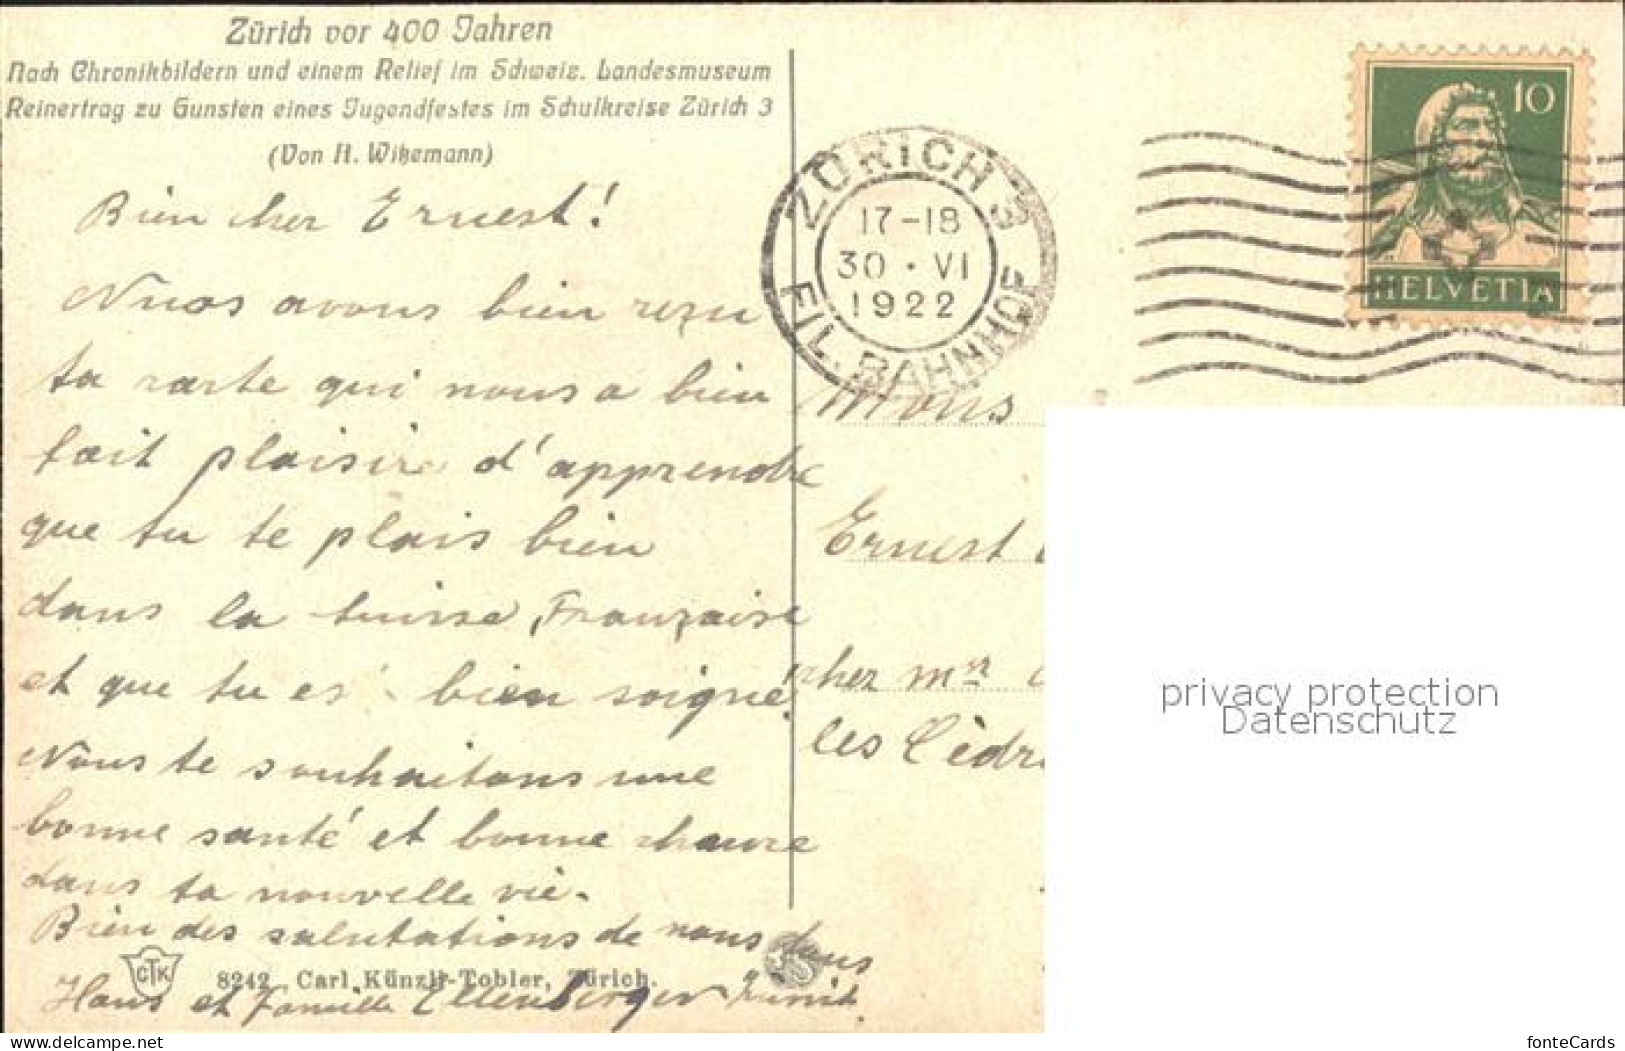 Zürich vor 400 Jahren
Nach Chronikbildern und einem Relief im Schweiz. Landesmuseum
Reinertrag zu Gunsten eines Jugendfestes im Schulkreise Zürich 3
(Von H. Witzemann)
Bien cher Ernest!
Nuos avons bien rezu
ta carte qui nous a bien
fait plaisir d'apprendre
que tu te plais bien
dans la Suisse Franzaise
et que tu es bien soigné!
Nous te souhaitons une
bonne santé et bonne chance
dans ta nouvelle vie.
Bien des salutations de nous tous
Hans et Famille Ellenberger Zürich
CTK
8242 Carl Künzli-Tobler, Zürich.
ZÜRICH 3
17-18
30 · VI
1922
FIL. BAHNHOF
10
HELVETIA
Mons
Ernest
chez Mr
les Cèdr
privacy protection
Datenschutz
www.delcampe.net
fonteCards